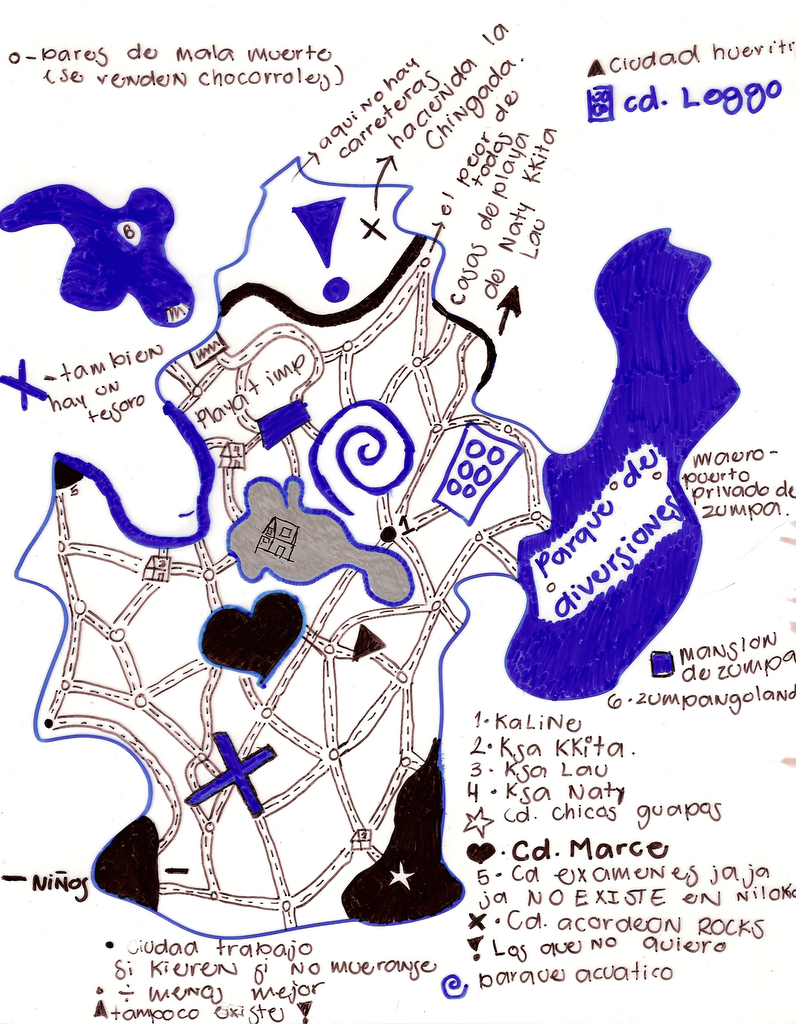 o-bares de mala muerte
(se venden chocorroles)
aqui no hay
carreteras
hacienda la
Chingada.
el peor
de todos
casas de playa
de Naty KKita
Lau
▲ciudad
cd. Loggo
6
m
x-tambien
hay un
tesoro
Playa timp
5
1
Parque de
diversiones
macro-
puerto
privado de
zumpa.
MANSION
de zumpa
6.zumpangoland
1. KaLiNe
2. Ksa KKita.
3. Ksa Lau
4. Ksa Naty
☆ Cd. chicas guapas
♥. Cd. Marce
5.- Cd exámenes jaja
ja NO EXISTE EN
x. Cd. acordeon ROCKS
Los que no quiero
parque acuatico
-NiÑos -
• Ciudad trabajo
si kieren si no mueranse
• ÷ menos mejor
▲tampoco existe